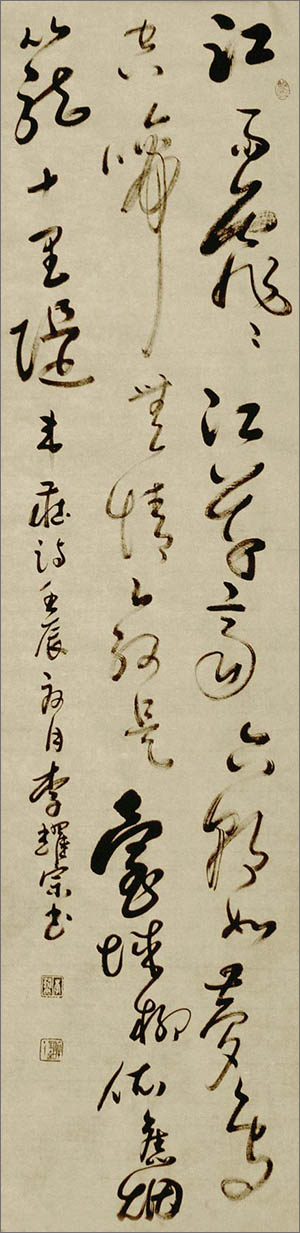 江雨霏〻江草齊六朝如夢鳥
空啼無情最是臺城柳依舊烟
籠十里隄韋莊詩壬辰月李耀宗书